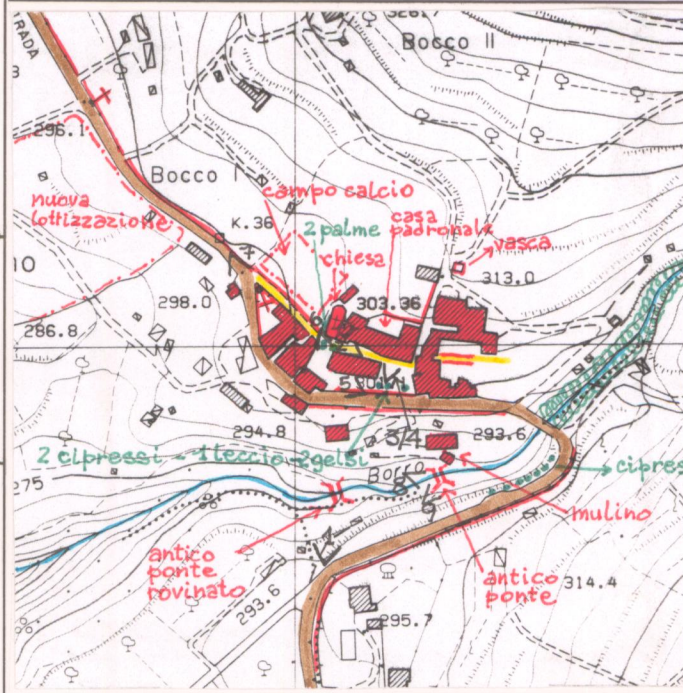 STRADA
Bocco II
296.1
Bocco I
campo calcio
nuova
lottizzazione
K.36
2 palme
casa
padronale
chiesa
vasca
313.0
10
298.0
303.36
286.8
294.8
3/4
293.6
2 cipressi - 1 leccio - 2 gelsi
Borro
cipres
275
mulino
antico
ponte
rovinato
antico
ponte
314.4
293.6
295.7